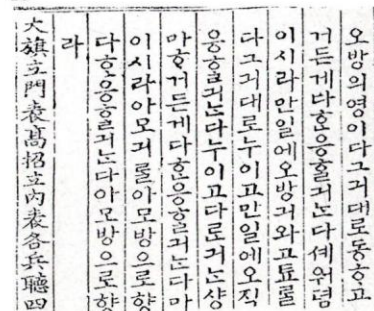 오방의영이다그긔대로동ᄒᆞ고
거든게다ᄒᆞᆫ응ᄒᆞᆯ긔ᄂᆞᆫ다셰워뎜
이시라만일에오방긔와고툐ᄅᆞᆯ
다그긔대로누이고만일에오직
응ᄒᆞᆯ긔ᄂᆞᆫ다누이고다ᄅᆞᆫ긔ᄂᆞᆫ샹
마ᄒᆞ거든게다ᄒᆞᆫ응ᄒᆞᆯ긔ᄂᆞᆫ다마
이시라아모긔ᄅᆞᆯ아모방으로향
다ᄒᆞᆫ응ᄒᆞᆯ긔ᄂᆞᆫ다아모방으로향
라
大旗立門表高招立內表各兵聽四